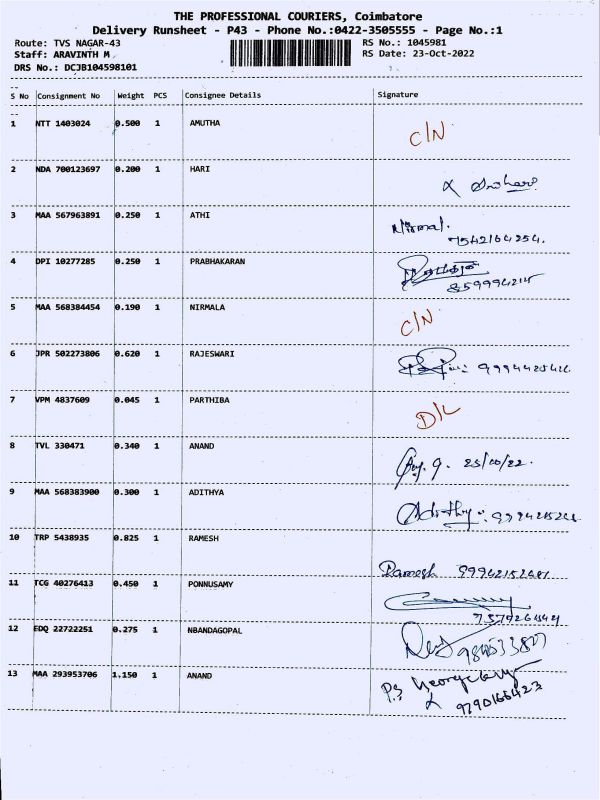 THE PROFESSIONAL COURIERS, Coimbatore
Delivery Runsheet - P43 - Phone No.:0422-3505555 - Page No.:1
Route: TVS NAGAR-43 RS No.: 1045981
Staff: ARAVINTH M RS Date: 23-Oct-2022
DRS No.: DCJB104598101
S No Consignment No Weight PCS Consignee Details Signature
1 NTT 1403024 0.500 1 AMUTHA C/N
2 NDA 700123697 0.200 1 HARI
3 MAA 567963891 0.250 1 ATHI Nirmal.
7542164254.
4 DPI 10277285 0.250 1 PRABHAKARAN
8599994215
5 MAA 568384454 0.190 1 NIRMALA C/N
6 JPR 502273806 0.620 1 RAJESWARI
7 VPM 4837609 0.045 1 PARTHIBA D/L
8 TVL 330471 0.340 1 ANAND 23/10/22.
9 MAA 568383900 0.300 1 ADITHYA Adithy
10 TRP 5438935 0.825 1 RAMESH Ramesh
11 TCG 40276413 0.450 1 PONNUSAMY
12 EDQ 22722251 0.275 1 NBANDAGOPAL
13 MAA 293953706 1.150 1 ANAND
9790166423